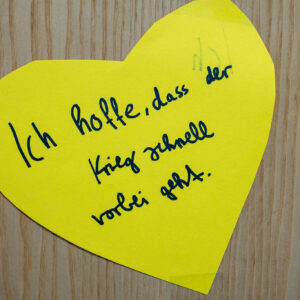 Ich hoffe, dass der
Krieg schnell
vorbei geht.